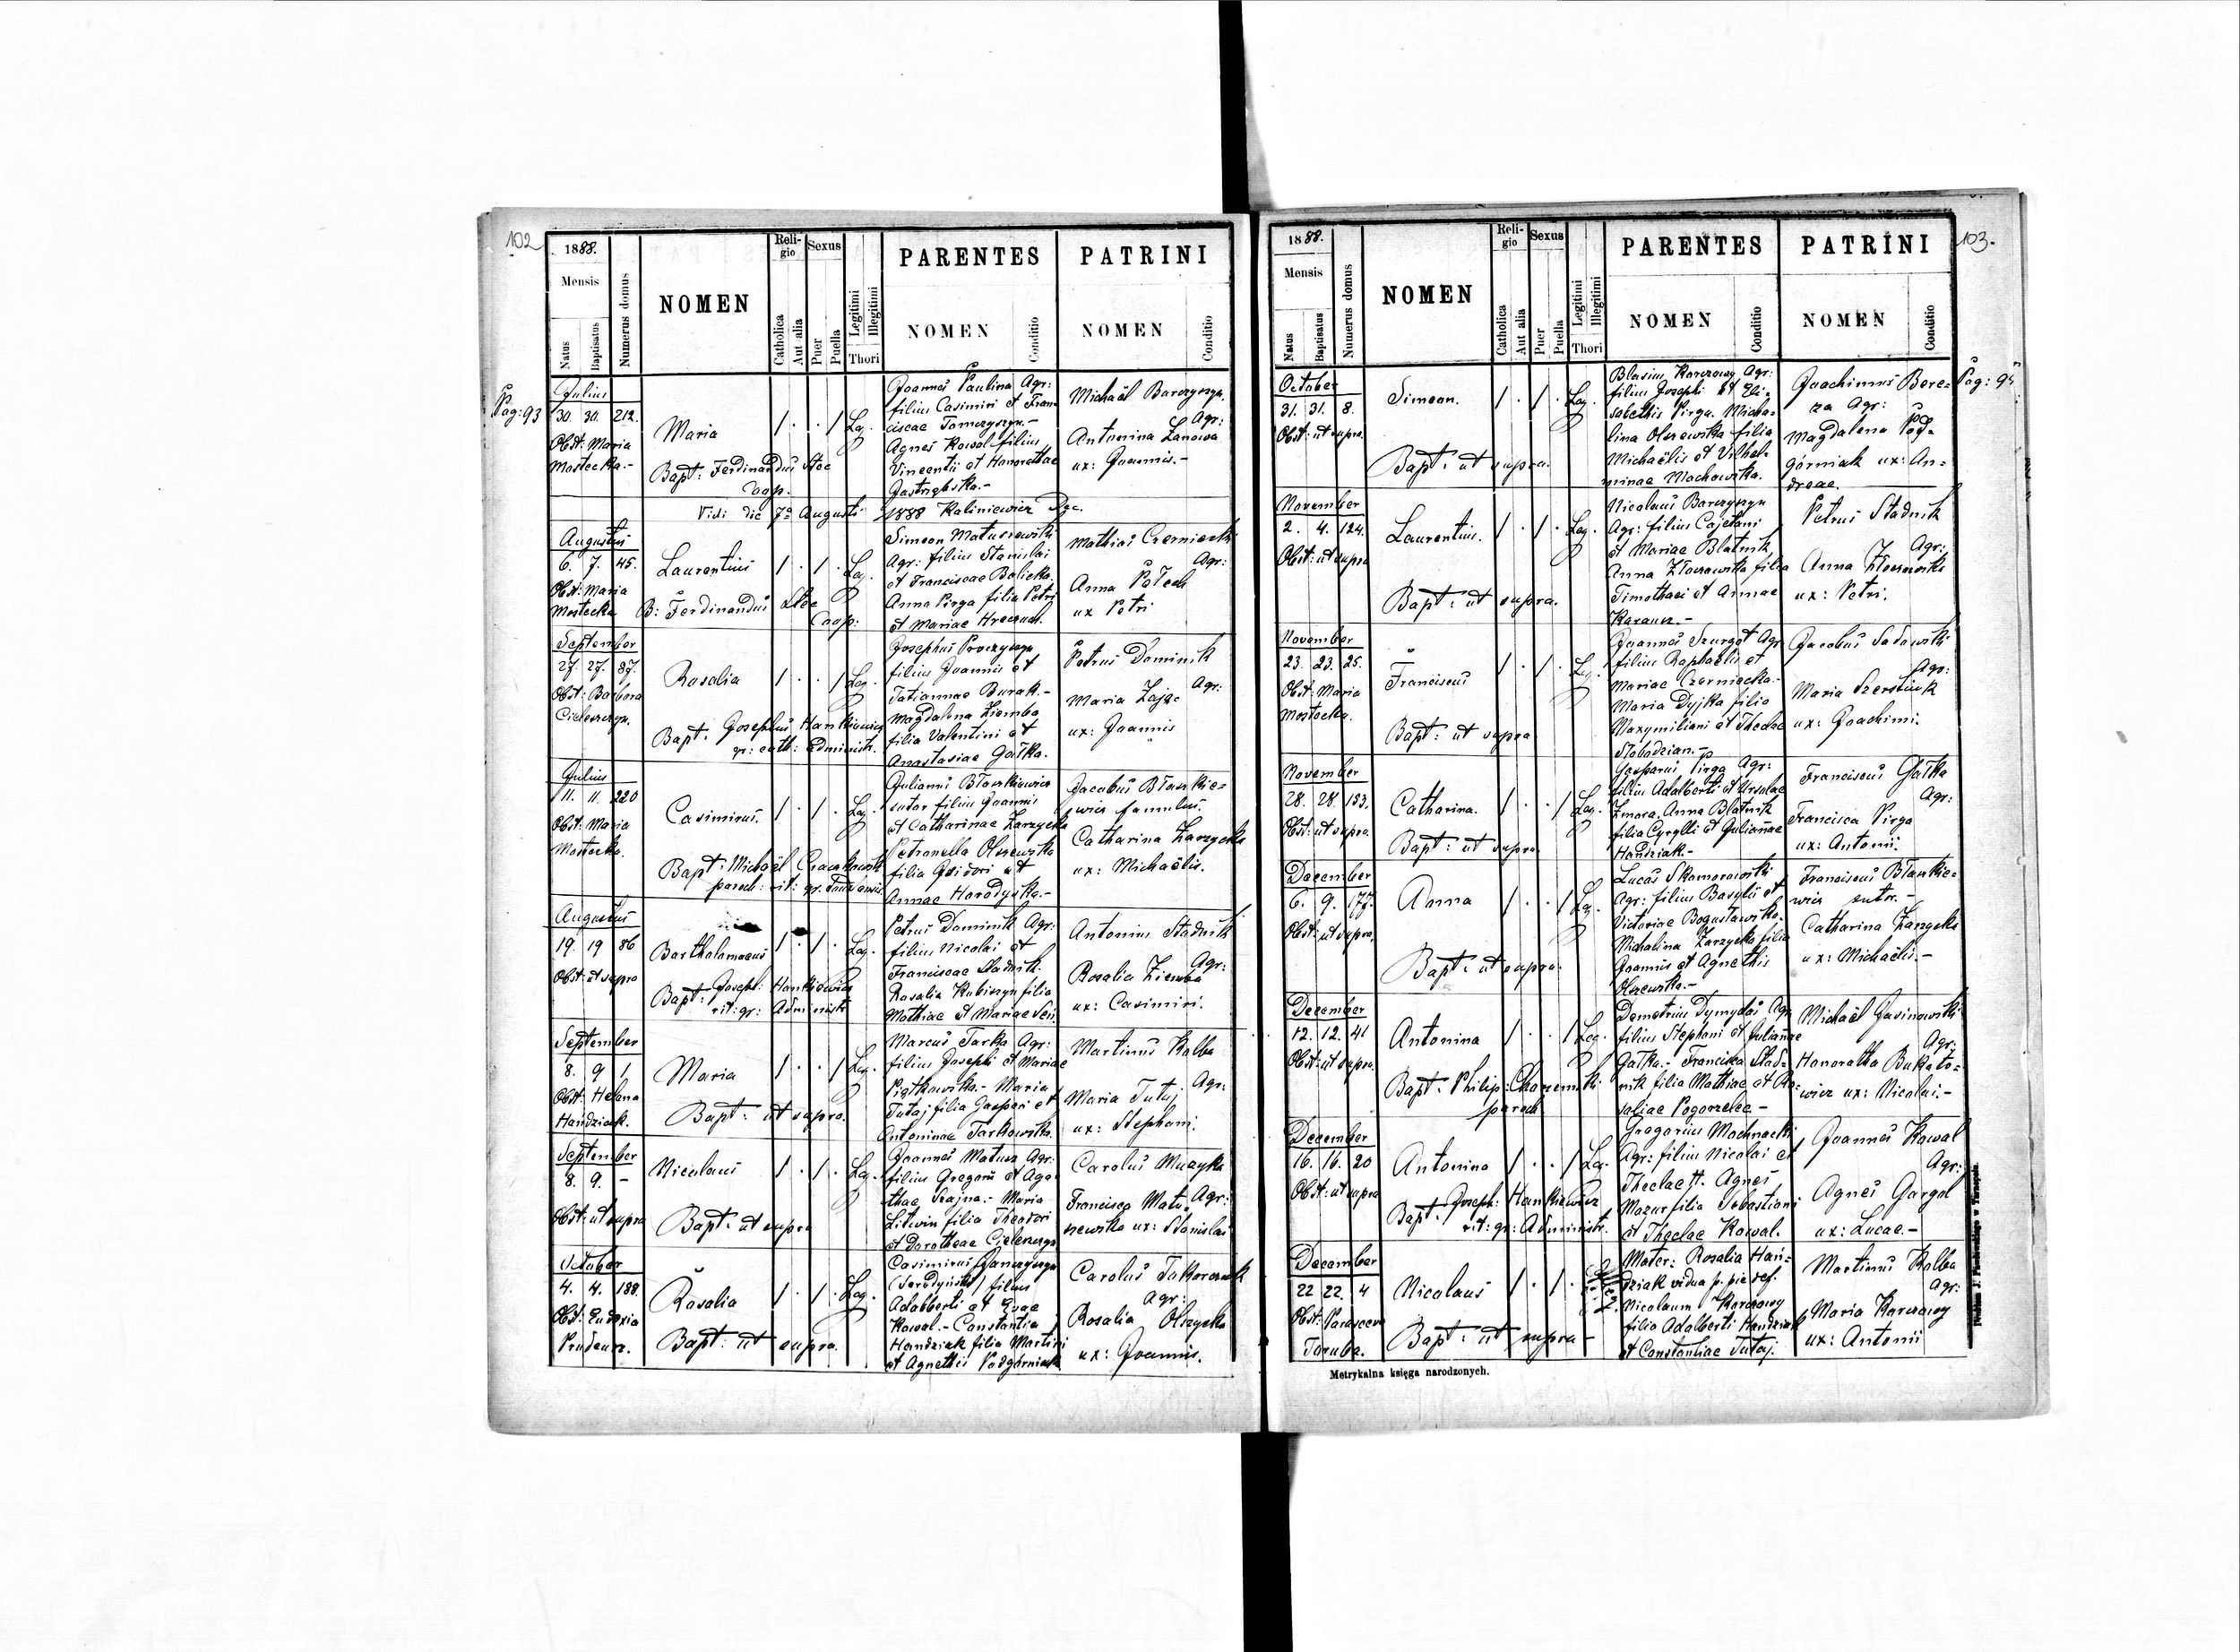 102
1888.
Mensis
Natus
Baptisatus
Numerus domus
NOMEN
Reli-
gio
Catholica
Aut alia
Sexus
Puer
Puella
Legitimi
Illegitimi
Thori
PARENTES
NOMEN
Conditio
PATRINI
NOMEN
Conditio
Pag: 93
Julius
30. 30. 212.
Obst: Maria
Mostecka.-
Maria
Bapt: Ferdinandus Stec
Coop.
Leg.
Joannes Paulina Agr:
filius Casimiri et Fran
ciscae Tomczyszyn.-
Agnes Kowal filius
Vincentii et Honorathae
Jastrzębska.-
Michaël Barczyszyn.
Agr:
Antonina Żanowa
ux: Joannis.-
Vidi die 7a Augusti 1888 Kaliniewicz
Augustus
6. 7. 45.
Obst: Maria
Mostecka
Laurentius
B: Ferdinandus Stec
Coop:
Leg.
Simeon Matusiewski
Agr: filius Stanislai
et Franciscae Bolicka
Anna Pirga filia Petri
et Mariae Hreczuch.
Mathias Czerniecki
Agr:
Anna Połech
ux Petri
September
27. 27. 87.
Obst: Barbara
Cieleszczyn.
Rosalia
Bapt: Josephus Hankiewicz
gr: cath: Administr.
Leg.
Josephus Proczyszyn
filius Joannis et
Tatiannae Burak.-
Magdalena Ziemba
filia Valentini et
Anastasiae Gałka.
Petrus Dominik
Agr:
Maria Zając
ux: Joannis
Julius
11. 11. 220
Obst: Maria
Mostecka.
Casimirus.
Bapt: Michaël
paroch: rit: gr:
Leg.
Julianus Błaszkiewicz
sutor filius Joannis
et Catharinae Zarzycka
Petronella Olszewska
filia Isidori et
Annae Horodyska.-
Jacobus Błaszkie-
wicz famulus.
Catharina Zarzycka
ux: Michaëlis.
Augustus
19. 19 86
Obst: ut supra
Bartholomaeus
Bapt: Joseph: Hankiewicz
rit: gr: Administr
Leg.
Petrus Dominik Agr:
filius Nicolai et
Franciscae Stadnik.
Rosalia Kubiszyn filia
Mathiae et Mariae Sen.
Antonius Stadnik
Agr:
Rosalia Ziemba
ux: Casimiri.
September
8. 9 1.
Obst: Helena
Handziak.
Maria
Bapt: ut supra.
Leg.
Marcus Tarka Agr:
filius Josephi et Mariae
Piątkowska.- Maria
Tutaj filia Gaspari et
Antoninae Tarkowska.
Martinus Kalba
Agr:
Maria Tutaj
ux: Stephani.
September
8. 9. -
Obst: ut supra
Nicolaus
Bapt: ut supra
Leg.
Joannes Matusz Agr:
filius Gregorii et Aga-
thae Szajna.- Maria
Litwin filia Theodori
et Dorotheae Cielenczyn
Carolus Muzyka
Agr:
Francisca Matu-
szewska ux: Stanislai
October
4. 4. 188.
Obst: Eudoxia
Prudeusz.
Rosalia
Bapt: ut supra.
Leg.
Casimirus
filius
Adalberti et Evae
Kowal.- Constantia
Handziak filia Martini
et Agnethis Podgórniak
Carolus Tokarczuk
Agr:
Rosalia Olszycka
ux: Joannis.
1888.
Mensis
Natus
Baptisatus
Numerus domus
NOMEN
Reli-
gio
Catholica
Aut alia
Sexus
Puer
Puella
Legitimi
Illegitimi
Thori
PARENTES
NOMEN
Conditio
PATRINI
NOMEN
Conditio
103.
Pag:
October
31. 31. 8.
Obst: ut supra.
Simeon.
Bapt: ut supra.
Leg.
Blasius Karczowy Agr:
filius Josephi et Eli-
sabethis Pirga. Micha-
lina Olszewska filia
Michaëlis et Vilhel-
minae Machowska.
Joachimus Bere-
za Agr:
Magdalena Pod-
górniak ux: An-
dreae.
November
2. 4. 124.
Obst: ut supra
Laurentius.
Bapt: ut supra.
Leg.
Nicolaus Barczyszyn
Agr: filius Cajetani
et Mariae Blatnik
Anna Złoczowska filia
Timothaei et Annae
Karausz.-
Petrus Stadnik
Agr:
Anna Złoczowska
ux: Petri.
November
23. 23. 25.
Obst: Maria
Mostecka.
Franciscus
Bapt: ut supra
Leg.
Joannes Szurgot Agr
filius Raphaëlis et
Mariae Czerniecka.-
Maria Dyjka filia
Maxymiliani et Theclae
Słobodzian.-
Jacobus Sadowski
Agr:
Maria Szerstiuk
ux: Joachimi.
November
28. 28. 153.
Obst: ut supra.
Catharina.
Bapt: ut supra
Leg.
Gasparus Pirga Agr:
filius Adalberti et Ursulae
Zmora. Anna Blatnik
filia Cyrylli et Juliannae
Handziak.-
Franciscus Gałka
Agr:
Francisca Pirga
ux: Antonii.
December
6. 9. 177.
Obst: ut supra,
Anna
Bapt: ut supra.
Leg.
Lucas Skomorowski
Agr: filius Basylii et
Victoriae Bogusławska.
Michalina Zarzycka filia
Joannis et Agnethis
Olszewska.-
Franciscus Błaszkie-
wicz sutor.-
Catharina Zarzycka
ux: Michaëlis.-
December
12. 12. 41
Obst: ut supra.
Antonina
Bapt: Philip:
paroch
Leg.
Demetrius Dymydas Agr
filius Stephani et Juliannae
Gałka.- Francisca Stad-
nik filia Mathiae et Ro-
saliae Pogorzelec -
Michaël Gasinowski
Agr:
Honoratha Bukato-
wicz ux: Nicolai.-
December
16. 16. 20
Obst: ut supra
Antonina
Bapt: Joseph: Hankiewicz
rit: gr: Administr.
Leg.
Gregorius Machnacki
Agr: filius Nicolai et
Theclae H. Agnes
Mazur filia Sebastiani
et Theclae Kowal.
Joannes Kowal
Agr:
Agnes Gargol
ux: Lucae.-
December
22 22. 4
Obst: Parasceva
Taruba.
Nicolaus
Bapt: ut supra -
Mater: Rosalia Han-
dziak vidua p. pie def.
Nicolaum Karczowy
filia Adalberti Handziak
et Constantiae Tutaj.
Martinus Kalba
Agr:
Maria Karczowy
ux: Antonii
Metrykalna księga narodzonych.